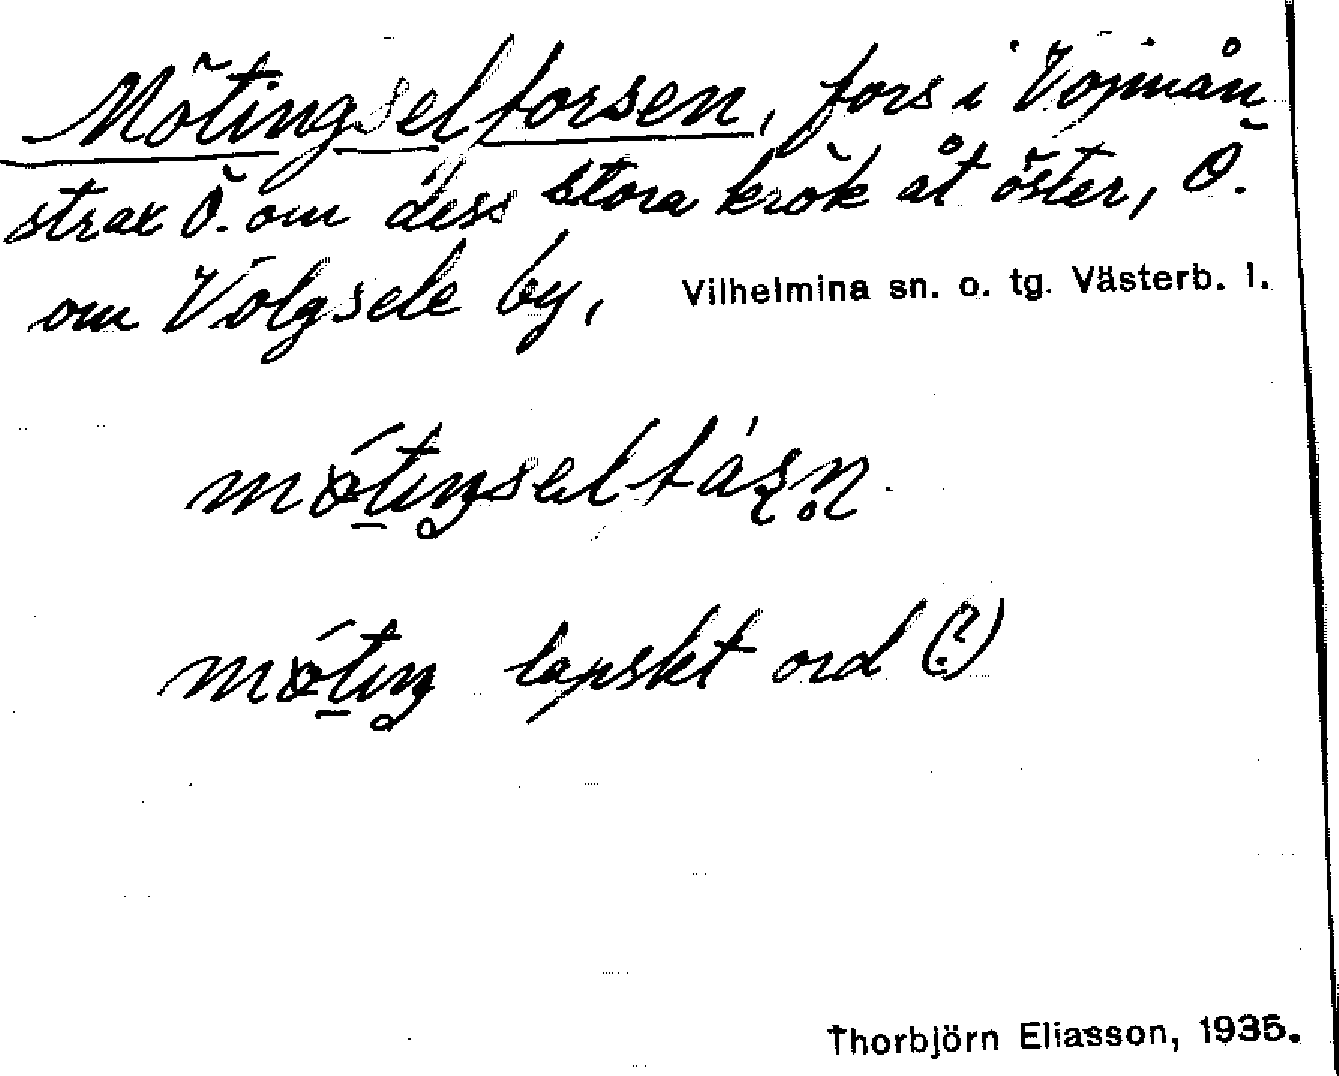 Mötingselforsen, fors i Vojmån
strax Ö. om dess stora krök åt öster, Ö.
om Volgsele by, Vilhelmina sn. o. tg. Västerb. l.
lapskt ord (?)
Thorbjörn Eliasson, 1935.